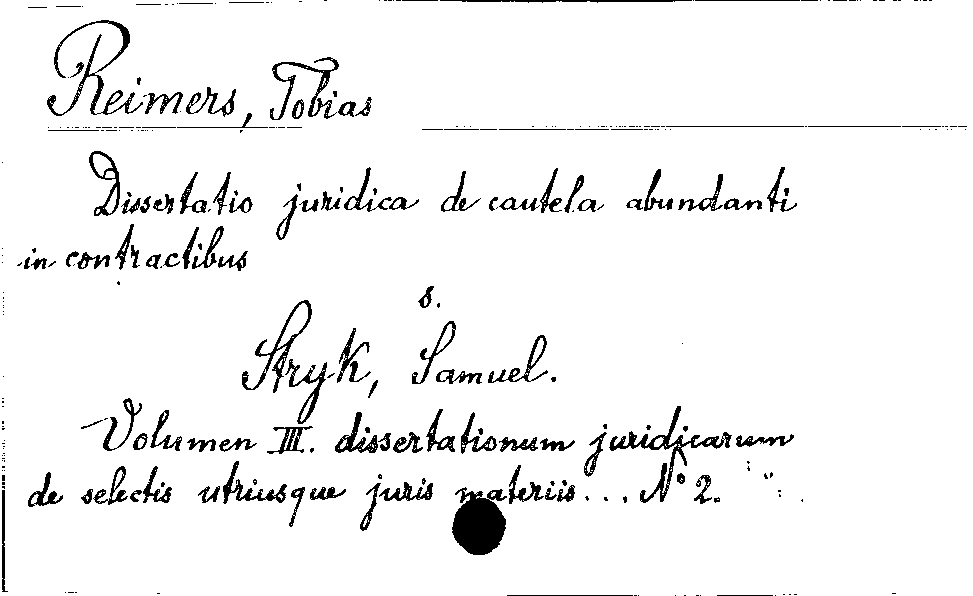 Reimers, Tobias
Dissertatio juridica de cautela abundanti
in contractibus
s.
Stryk, Samuel.
Volumen III. dissertationum juridicarum
de selectis utriusque juris materiis... N° 2.